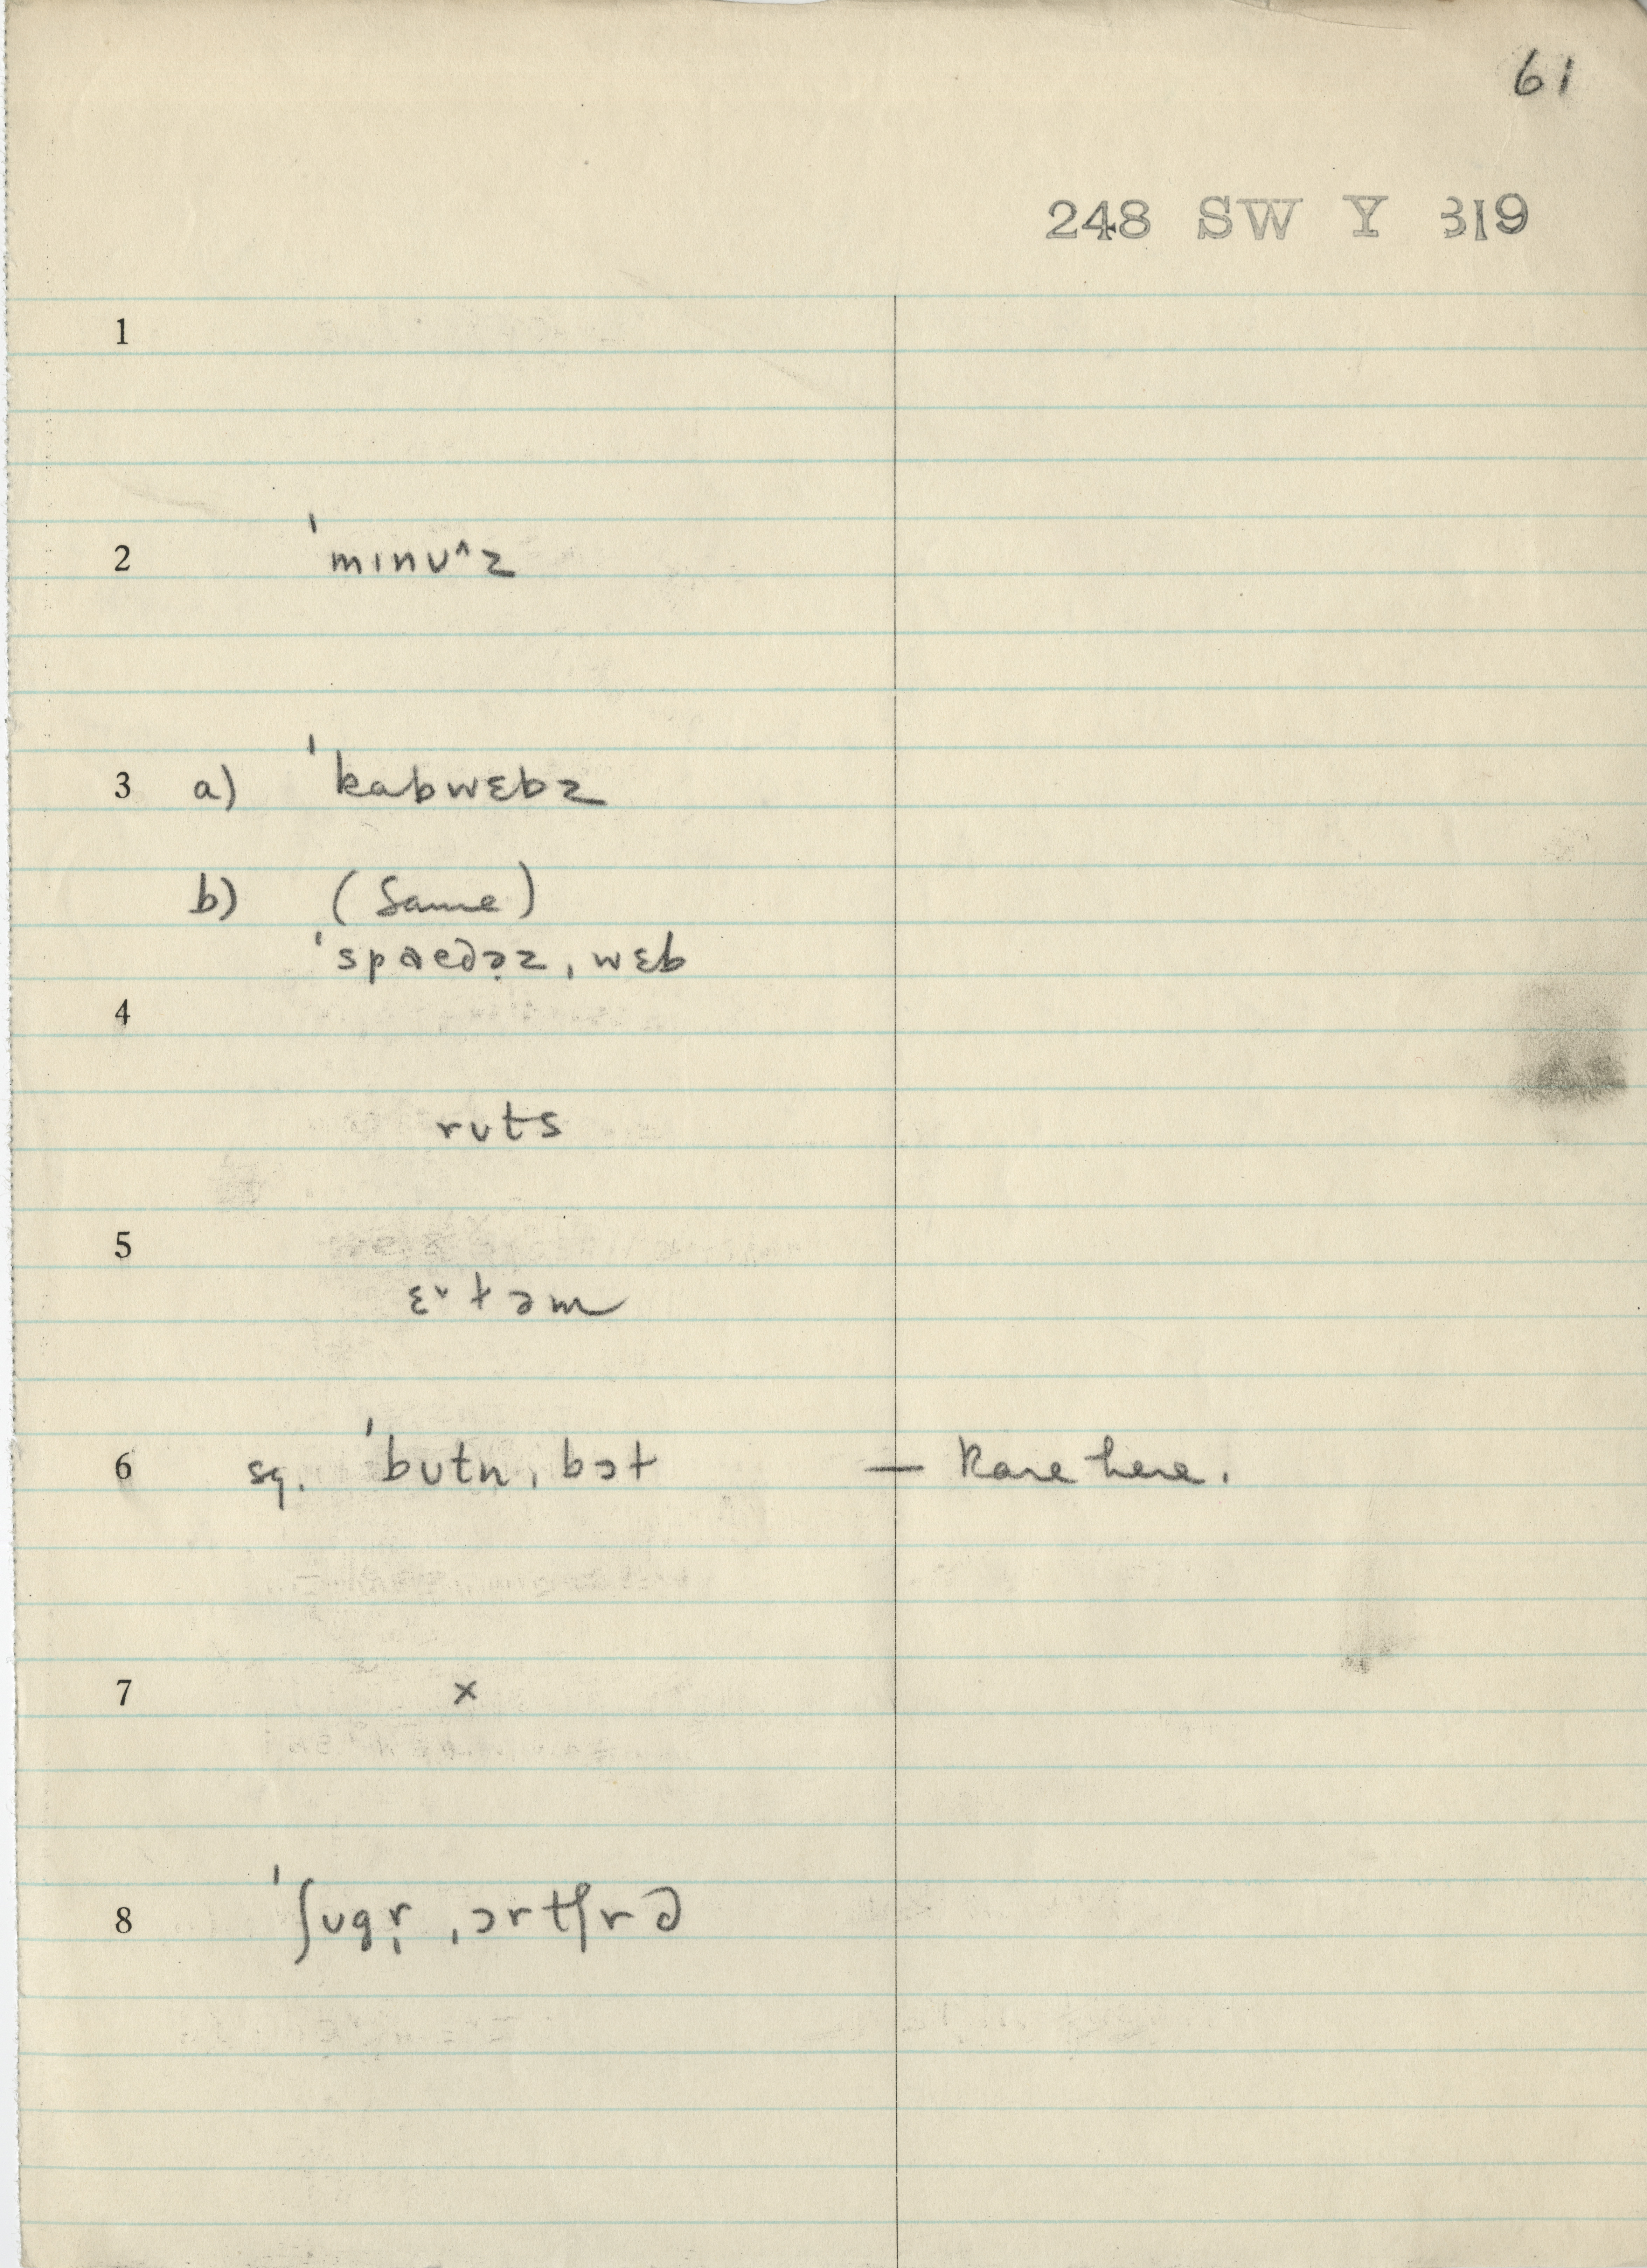 61
248 SW Y 319
1
2 ˈmɪnʊ^z
3 a) ˈkabwɛbz
b) (Same)
ˈspaedə̣z ˌwɛb
4
rʊts
5
ɛᵛtəm
6 sg. ˈbʊtn ˌbɔt — Rare here.
7 x
8 ˈʃʊgr̩ ˌɔrtʃrd